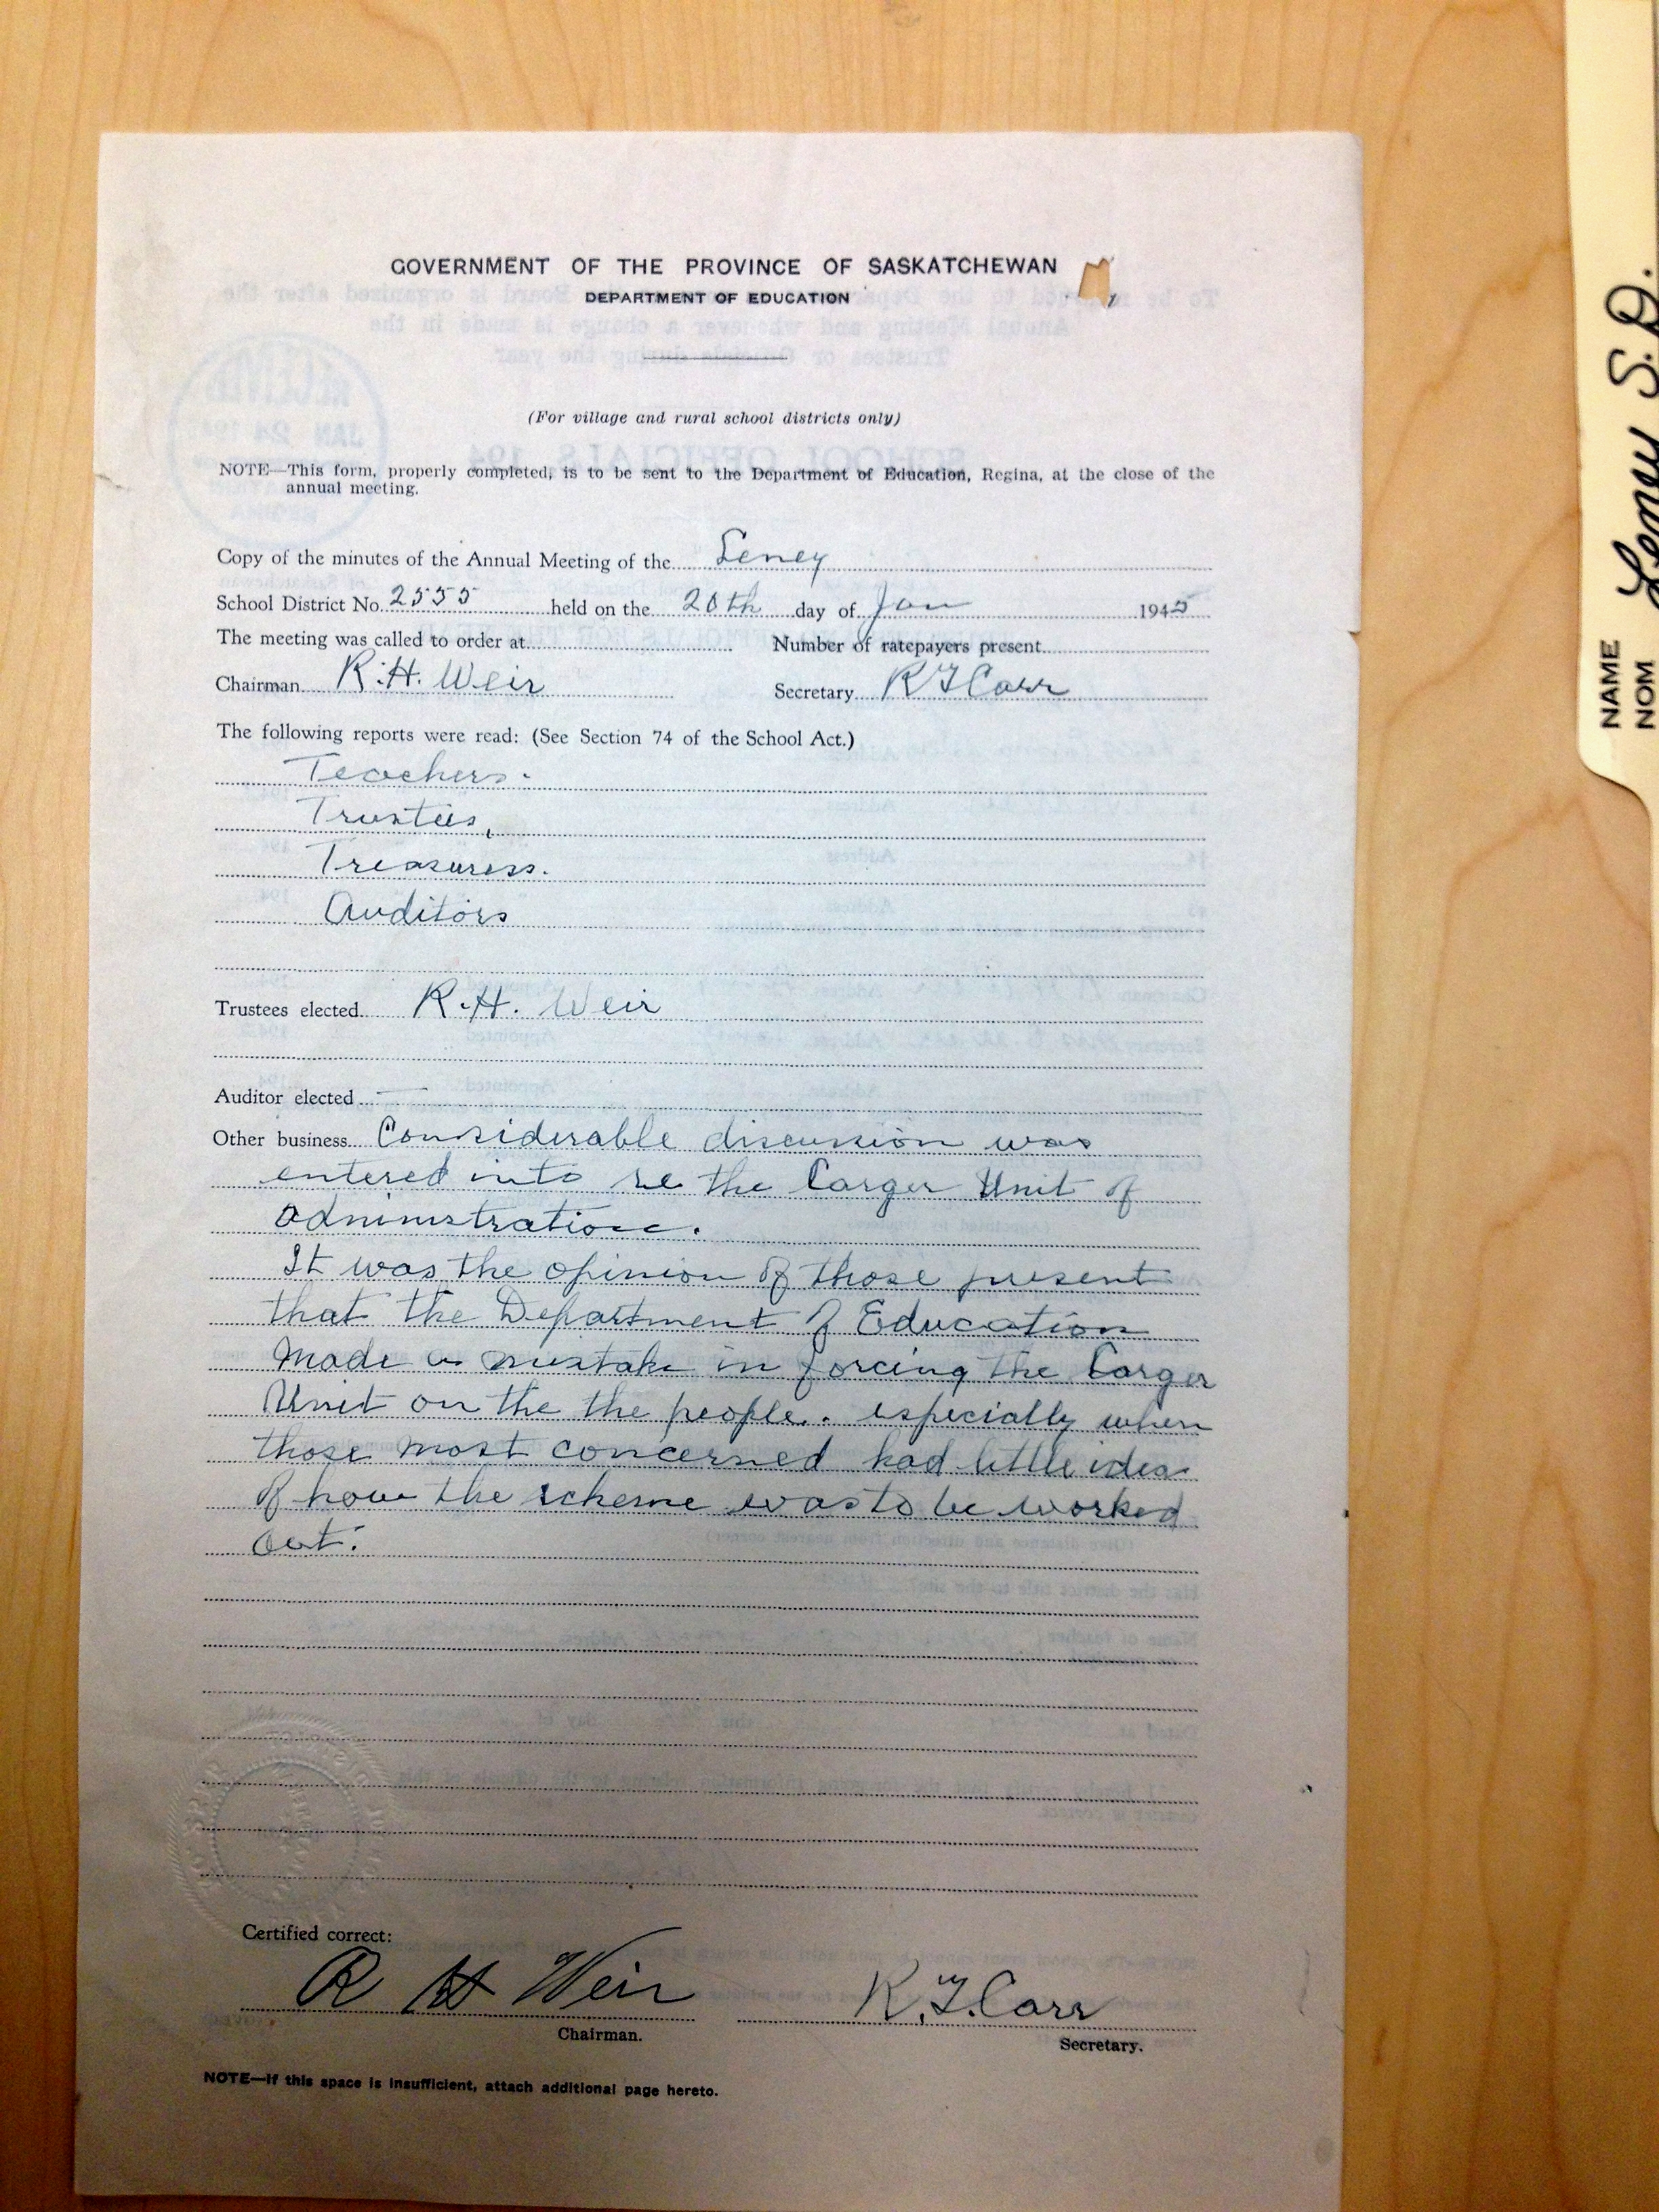 GOVERNMENT OF THE PROVINCE OF SASKATCHEWAN
DEPARTMENT OF EDUCATION
(For village and rural school districts only)
NOTE—This form, properly completed, is to be sent to the Department of Education, Regina, at the close of the
annual meeting.
Copy of the minutes of the Annual Meeting of the Leney
School District No. 2555 held on the 20th day of Jan 1945
The meeting was called to order at Number of ratepayers present
Chairman R.H. Weir Secretary R F Carr
The following reports were read: (See Section 74 of the School Act.)
Teachers.
Trustees,
Treasurers.
Auditors
Trustees elected R.H. Weir
Auditor elected —
Other business Considerable discussion was
entered into re the Larger Unit of
administration.
It was the opinion of those present
that the Department of Education
Made a mistake in forcing the Larger
Unit on the the people. especially when
those most concerned had little idea
of how the scheme was to be worked
out.
Certified correct:
R H Weir R.F.Carr
Chairman. Secretary.
NOTE—If this space is insufficient, attach additional page hereto.
NAME
NOM
Leney S.D.